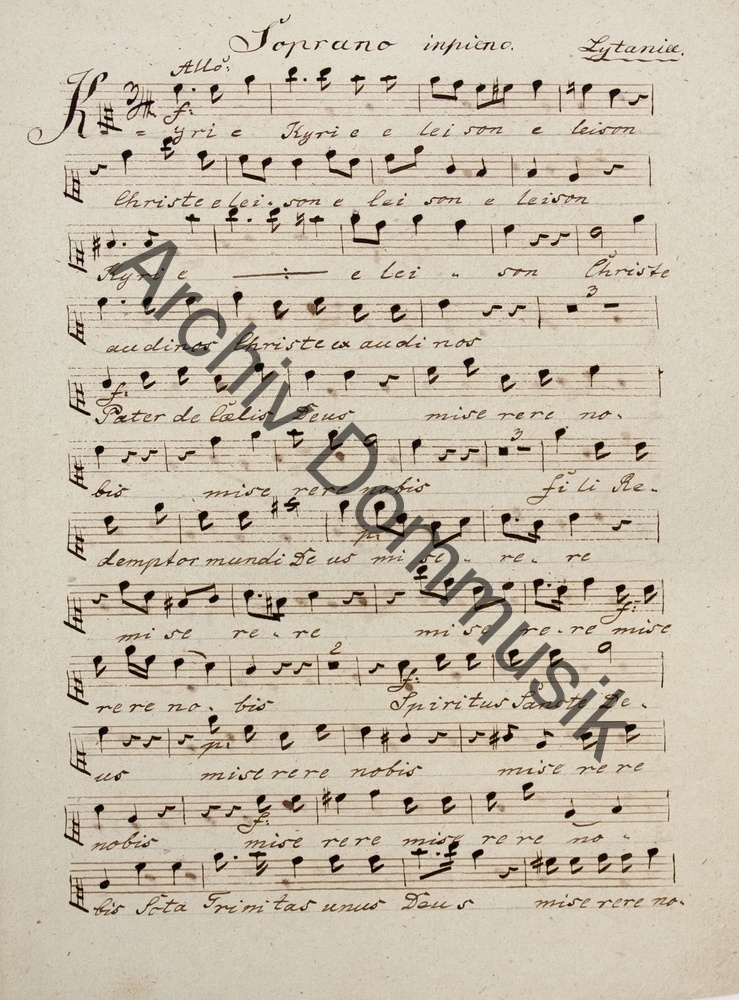 Soprano inpieno. Lytaniae.
Allo:
f:
Kyrie Kyrie e leison e leison
Christe elei-son e lei son e leison
Kyrie e lei " son Christe
3
audi nos Christe ex audi nos
f:
Pater de Cælis Deus mise rere no-
3
bis mise rere nobis fi li Re-
p:
demptor mundi Deus mi se-re-re
f:
mi se re-re mi se re-re mise
2
f:
rere no-bis Spiritus Sancte De-
p:
us mise rere nobis mise re re
f:
nobis mise rere mise re re no "
bis Scta Trinitas unus Deus mise rere no-
Archiv Dommusik